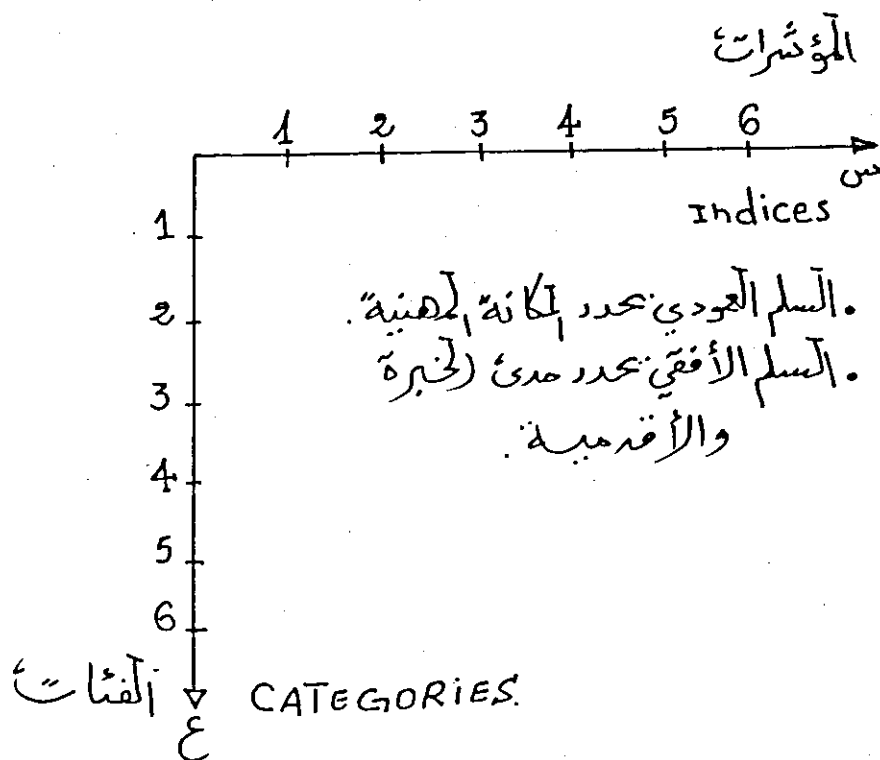 المؤشرات
1 2 3 4 5 6
س
Indices
1
2
3
4
5
6
• السلم العمودي يحدد المكانة المهنية.
• السلم الأفقي يحدد مدى الخبرة
والأقدمية.
الفئات CATEGORIES.
ع